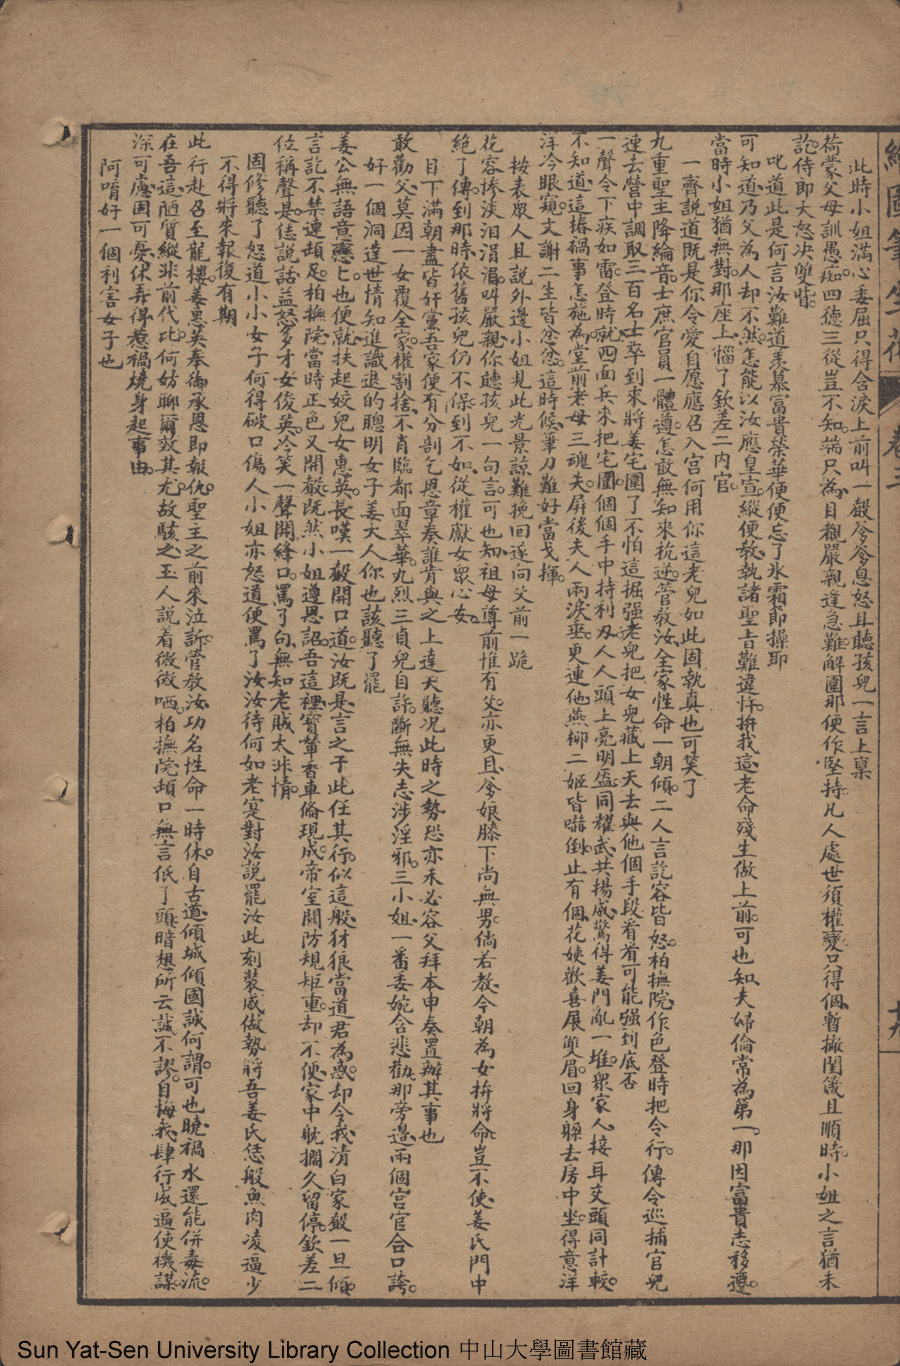 繪圖筆生花
卷三
此時小姐滿心委屈只得含淚上前叫一嚴爹爹息怒且聽孩兒一言上稟
荷蒙父母訓愚痴四德三從豈不知端只為目觀嚴親逢急難解圍那便作堅持凡人處世須權變只得個暫撇閨箴且順時小姐之言猶未
訖侍郎大怒决雙眥
叱道此是何言汝難道羨慕富貴榮華便便忘了氷霜節操耶
可知道乃父為人却不然怎能以汝應皇宣縱便教執諸聖旨難違忤拚我這老命殘生做上前可也知夫婦倫常為第一那因富貴志移遷
當時小姐猶無對那座上惱了欽差二內官
一齊説道既是你令愛自愿應召入宫何用你這老兒如此固執真也可笑了
九重聖主降綸音士庶官員一體遵怎敢無知來抗逆管教汝全家性命一朝傾二人言訖容皆怒柏撫院作色登時把令行傳令巡捕官兒
速去營中調取三百名士卒到來將姜宅圍了不怕這掘强老兒把女兒藏上天去與他個手段看看可能强到底否
一聲令下疾如雷登時就四面兵來把宅圍個個手中持利刄人人頭上亮明盔同耀武共揚威驚得姜門亂一堆衆家人接耳交頭同計較
不知道這樁禍事怎施為堂前老母三魂失屏後夫人兩淚垂更連他燕柳二姬皆嚇倒止有個花婕歡喜展雙眉回身躲去房中坐得意洋
洋冷眼窺文謝二生皆忿忿這時候筆刀難好當戈揮
按表衆人且説外邊小姐見此光景諒難挽回遂向父前一跪
花容㥧淡泪涓涓叫嚴親你聽孩兒一句言可也知祖母尊前惟有父亦更且爹娘膝下尚無男倘若教今朝為女拚將命豈不使姜氏門中
絕了傳到那時依舊孩兒仍不保到不如從權獻女衆心女
目下滿朝盡皆奸黨吾家便有分剖乞恩章奏誰肯與之上達天聽况此時之勢恐亦未必容父拜本申奏置辦其事也
敢勸父莫因一女覆全家權割捨不肖臨都面翠華九烈三貞兒自許斷無失志涉淫邪三小姐一番委婉含悲勸那旁邊兩個宫官合口誇
好一個洞達世情知進識退的聰明女子姜大人你也該聽了罷
姜公無語意戀戀也便就扶起姣兒女惠英長嘆一聲開口道汝既是言之于此任其行似這般豺狼當道君為惑却令我清白家聲一旦傾
言訖不禁連頓足柏撫院當時正色又開聲既然小姐遵恩詔吾這裡寶輦香車俻現成帝室關防規矩重却不便家中躭擱久留停欽差二
位稱聲是佳説話益怒多才女俊英冷笑一聲開絳口罵了句無知老賊太非情
固修聽了怒道小小女子何得破口傷人小姐亦怒道便罵了汝汝待何如老寔對汝説罷汝此刻裝威做勢將吾姜氏恁般魚肉凌逼少
不得將來報復有期
此行赴召至龍樓姜惠英奉御承恩即報仇聖主之前來泣訴管教汝功名性命一時休自古道傾城傾國誠何謂可也曉禍水還能併毒流
在吾這陋質縱非前代比何妨聊爾效其尤故駭之玉人説着微微哂柏撫院頓口無言低了頭暗想所云誠不謬自悔我肆行威逼使機謀
深可慮固可憂休弄得惹禍燒身起事由
阿唷好一個利害女子也
Sun Yat-Sen University Library Collection 中山大學圖書館藏